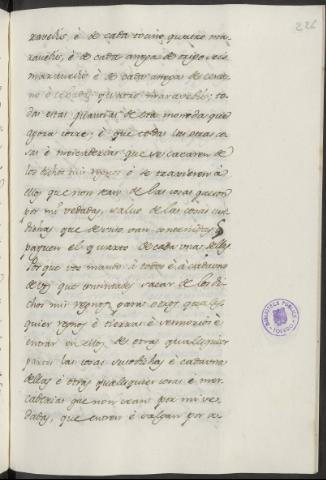 226
ravedis, è de cada tocino quatro ma-
ravedis, è de cada anega de trigo, seis
maravedis è de cada anega de cente-
no è cebada quatro maravedis; to-
das estas quantias de esta moneda que
agora corre, è que todas las otras co-
sas è mercaderias que se sacaren de
los dichos mis regnos è se traxieren à
ellos que non sean de las cosas que son
por mi vedadas, salvo de las cosas suso-
dichas que de suso van contenidas
paguen el quarto de cada cosa dellas
Por que vos mando à todos è à cada uno
de vos que consintades sacar de los di-
chos mis regnos para otros quales-
quier regnos è tierras è sennorios è
entrar en ellos de otras qualesquier
partes las cosas susodichas è cada una
dellas è otras qualesquier cosas è mer-
caderias que non sean por mi ve-
dadas, que entren è salgan por
BIBLIOTECA PUBLICA
TOLEDO